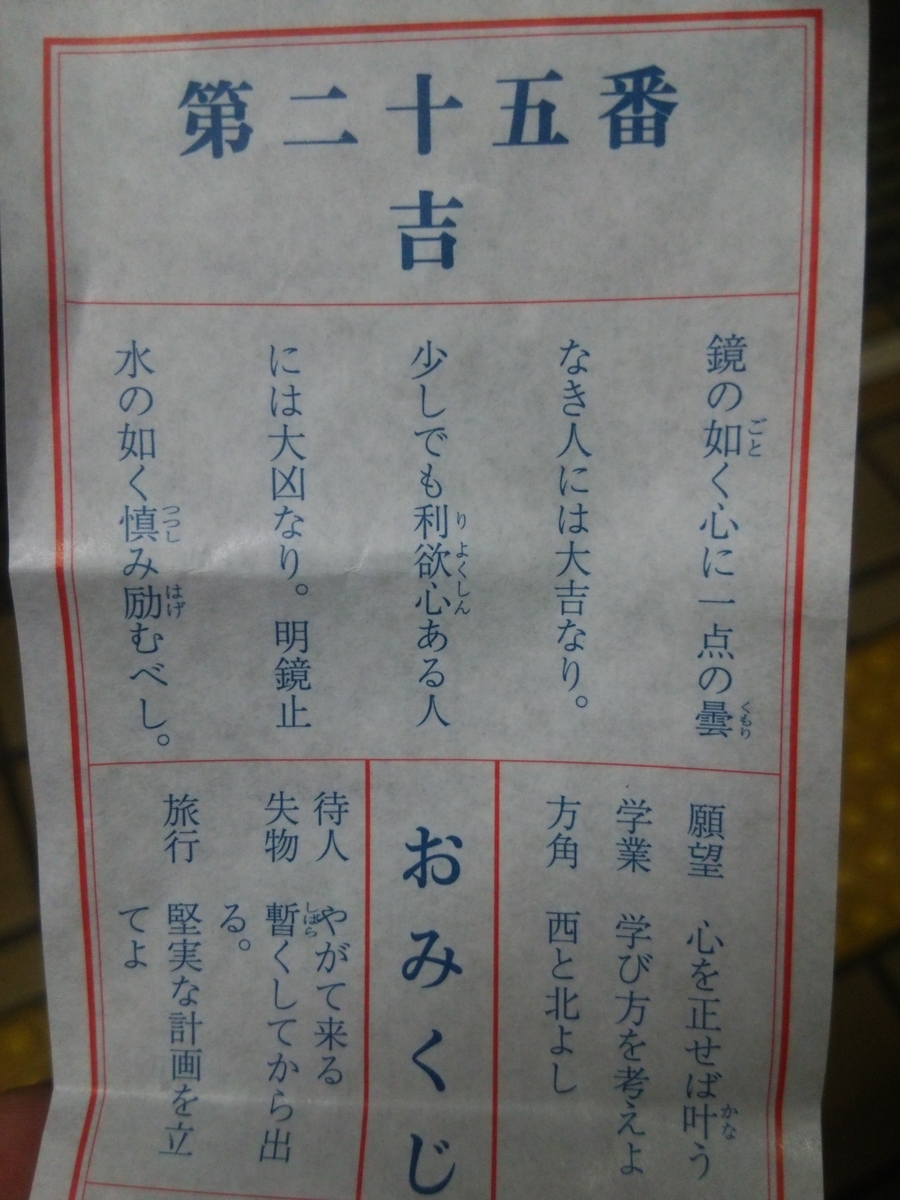 第二十五番
吉
鏡の如く心に一点の曇
ごと
くもり
なき人には大吉なり。
少しでも利欲心ある人
りよくしん
には大凶なり。明鏡止
水の如く慎み励むべし。
つつし
はげ
願望 心を正せば叶う
かな
学業 学び方を考えよ
方角 西と北よし
おみくじ
待人 やがて来る
失物 暫くしてから出
しばら
る。
旅行 堅実な計画を立
てよ